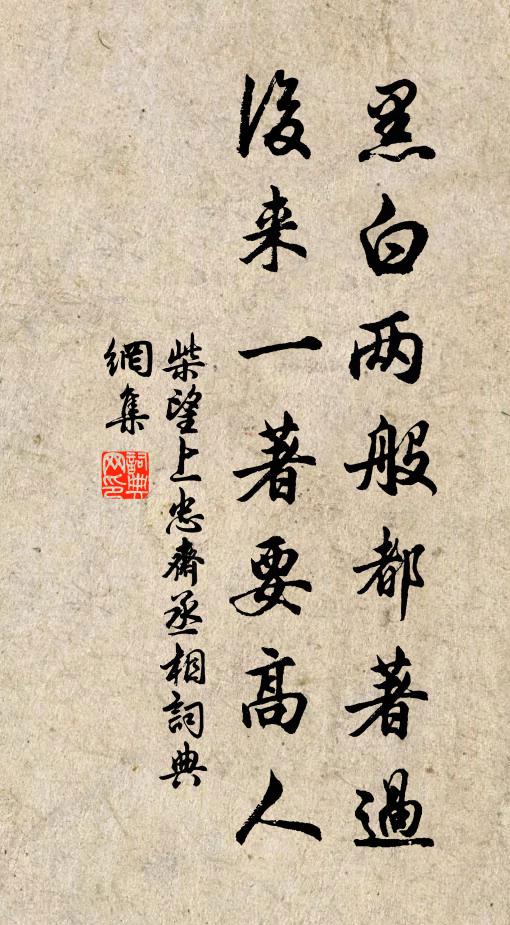 黑白两般都著過
後来一著要高人
柴望上忠齋丞相詞典
網集
詞典
网印